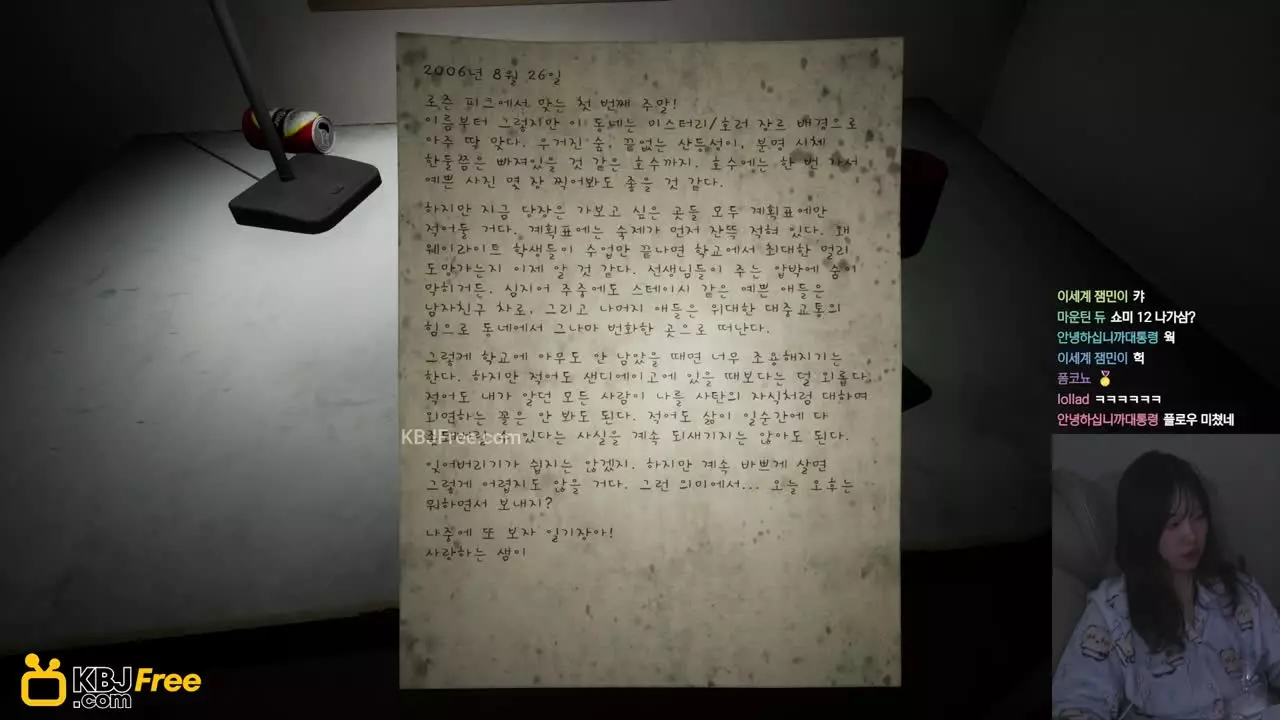 2006년 8월 26일
로즌 피크에서 맞는 첫 번째 주말!
이름부터 그렇지만 이 동네는 미스터리/호러 장르 배경으로
아주 딱 맞다. 우거진 숲, 끝없는 산등성이, 분명 시체
한둘쯤은 빠져있을 것 같은 호수까지. 호수에는 한 번 가서
예쁜 사진 몇 장 찍어봐도 좋을 것 같다.
하지만 지금 당장은 가보고 싶은 곳들 모두 계획표에만
적어둘 거다. 계획표에는 숙제가 먼저 잔뜩 적혀 있다. 왜
웨이라이트 학생들이 수업만 끝나면 학교에서 최대한 멀리
도망가는지 이제 알 것 같다. 선생님들이 주는 압박에 숨이
막히거든. 심지어 주중에도 스테이시 같은 예쁜 애들은
남자친구 차로, 그리고 나머지 애들은 위대한 대중교통의
힘으로 동네에서 그나마 번화한 곳으로 떠난다.
그렇게 학교에 아무도 안 남았을 때면 너무 조용해지기는
한다. 하지만 적어도 샌디에이고에 있을 때보다는 덜 외롭다.
적어도 내가 알던 모든 사람이 나를 사탄의 자식처럼 대하며
외면하는 꼴은 안 봐도 된다. 적어도 삶이 일순간에 다
있다는 사실을 계속 되새기지는 않아도 된다.
잊어버리기가 쉽지는 않겠지. 하지만 계속 바쁘게 살면
그렇게 어렵지도 않을 거다. 그런 의미에서... 오늘 오후는
뭐하면서 보내지?
나중에 또 보자 일기장아!
사랑하는 샘이
KBJFree.com
이세계 잼민이 캬
마운틴 듀 쇼미 12 나가삼?
안녕하십니까대통령 웍
이세계 잼민이 헉
폼코뇨
lollad ㅋㅋㅋㅋㅋㅋ
안녕하십니까대통령 플로우 미쳤네
KBJ Free
.com